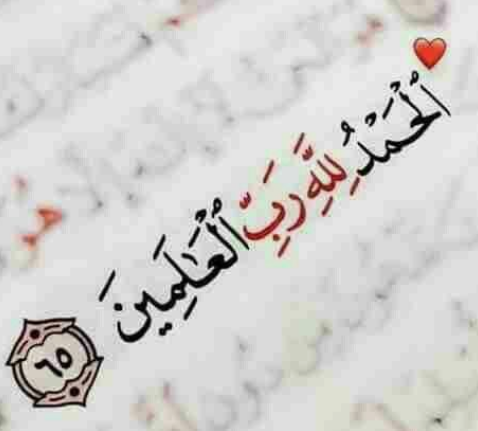 ٱلْحَمْدُ لِلَّهِ رَبِّ ٱلْعَٰلَمِينَ ٦٥